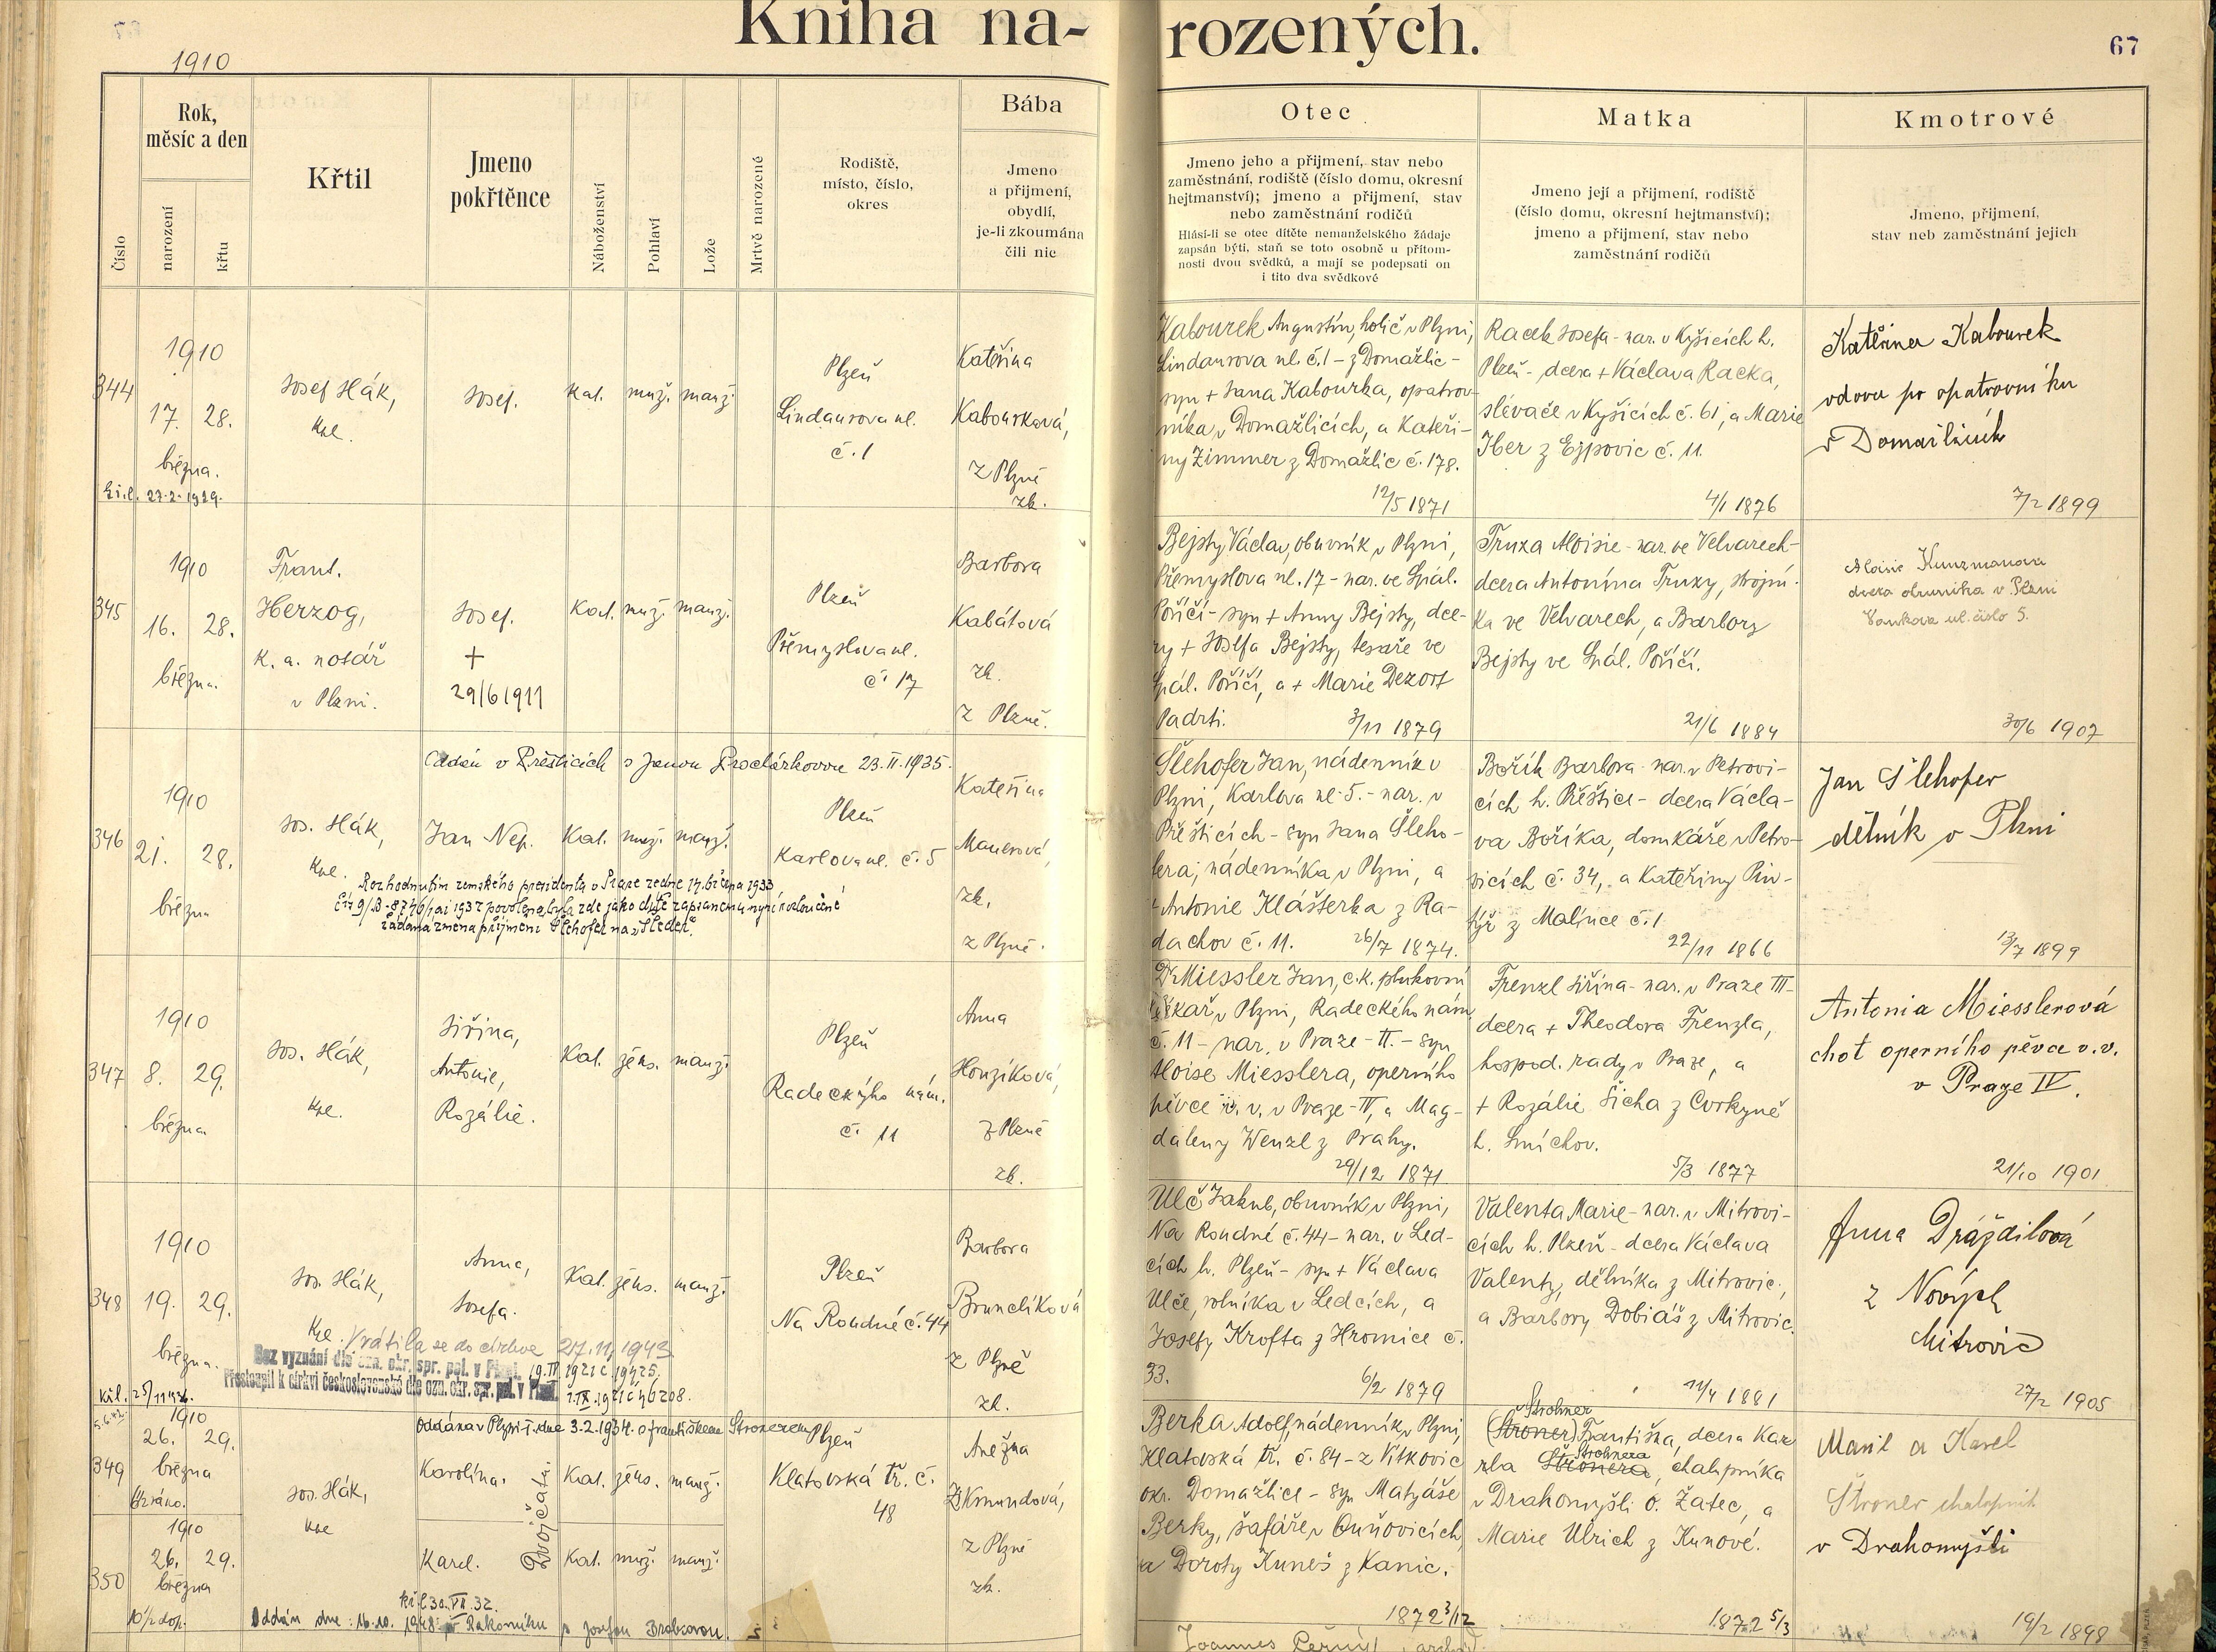 Kniha na-
rozených.
67
1910
Číslo
Rok,
měsíc a den
narození
křtu
Křtil
Jmeno
pokřtěnce
Náboženství
Pohlaví
Lože
Mrtvě narozené
Rodiště,
místo, číslo,
okres
Bába
Jmeno
a přijmení,
obydlí,
je-li zkoumána
čili nic
Otec
Jmeno jeho a přijmení, stav nebo
zaměstnání, rodiště (číslo domu, okresní
hejtmanství); jmeno a přijmení, stav
nebo zaměstnání rodičů
Hlásí-li se otec dítěte nemanželského žádaje
zapsán býti, staň se toto osobně u přítom-
nosti dvou svědků, a mají se podepsati on
i tito dva svědkové
Matka
Jmeno její a přijmení, rodiště
(číslo domu, okresní hejtmanství);
jmeno a přijmení, stav nebo
zaměstnání rodičů
Kmotrové
Jmeno, přijmení,
stav neb zaměstnání jejich
344
1910
17. 28.
března.
27.2.1929.
Josef Hák,
kpl.
Josef.
Kat. muž. manž.
Plzeň
Lindaurova ul.
č. 1
Kateřina
Kabourková,
z Plzně
zk.
Kabourek Augustin, holič v Plzni,
Lindaurova ul. č. 1 - z Domažlic -
syn + Jana Kabourka, opatrov-
níka v Domažlicích, a Kateři-
ny Zimmer z Domažlic č. 178.
12/5 1871
Racek Josefa - nar. v Kyšicích h.
Plzeň - dcera + Václava Racka,
slévače v Kyšicích č. 61, a Marie
Iber z Ejpovic č. 11.
4/1 1876
Kateřina Kabourek
vdova po opatrovníku
v Domažlicích
7/2 1899
345
1910
16. 28.
března.
Frant.
Herzog,
k. a. notář
v Plzni.
Josef.
+
29/6 1911
Kat. muž. manž.
Plzeň
Přemyslova ul.
č. 17
Barbora
Kabátová
zk.
z Plzně.
Bejsty Václav, obuvník v Plzni,
Přemyslova ul. 17 - nar. ve Spál.
Poříčí - syn + Anny Bejsty, dce-
ry + Josefa Bejsty, tesaře ve
Spál. Poříčí, a + Marie Dezort
Padrti.
3/11 1879
Truxa Aloisie - nar. ve Velvarech -
dcera Antonína Truxy, strojní-
ka ve Velvarech, a Barbory
Bejsty ve Spál. Poříčí.
21/6 1884
Aloisie Kunzmanova
dcera obuvníka v Plzni
ul. číslo 5.
30/6 1907
Oddán v Přešticích s Janou Procházkovou 23.II.1935.
346
1910
21. 28.
března
Jos. Hák,
kpl.
Jan Nep.
Kat. muž. manž.
Plzeň
Karlova ul. č. 5
Kateřina
Mauerová,
zk.
z Plzně.
Rozhodnutím zemského presidenta v Praze ze dne 14. března 1933
žádána změna příjmení Šlehofer na „Šleder".
Šlehofer Jan, nádenník v
Plzni, Karlova ul. 5. - nar. v
Přešticích - syn Jana Šleho-
fera, nádenníka v Plzni, a
Antonie Klášterka z Ra-
dachov č. 11.
26/7 1874.
Bořík Barbora - nar. v Petrovi-
cích h. Přeštice - dcera Václa-
va Boříka, domkáře v Petro-
vicích č. 34, a Kateřiny Pin-
týř z Malince č. 1
22/11 1866
Jan Šlehofer
dělník v Plzni
13/7 1899
347
1910
8. 29.
března
Jos. Hák,
kpl.
Jiřina,
Antonie,
Rozálie.
Kat. žens. manž.
Plzeň
Radeckýho nám.
č. 11
Anna
Honzíková,
z Plzně
zk.
Dr Miessler Jan, c.k. plukovní
lékař v Plzni, Radeckého nám.
č. 11 - nar. v Praze - II. - syn
Aloise Miesslera, operního
pěvce v. v. v Praze - IV, a Mag-
daleny Wenzl z Prahy.
29/12 1871
Frenzl Jiřina - nar. v Praze III -
dcera + Theodora Frenzla,
hospod. rady v Praze, a
+ Rozálie Šicha z Cvrkyně
h. Smíchov.
5/3 1877
Antonia Miesslerová
choť operního pěvce v. v.
v Praze IV.
21/10 1901
348
1910
19. 29.
března.
Jos. Hák,
kpl.
Anna,
Josefa.
Kat. žens. manž.
Plzeň
Na Roudné č. 44
Barbora
Brunclíková
z Plzně
zk.
Vrátila se do církve 27.11.1943
Bez vyznání dle ozn. okr. spr. pol. v Plzni.
Přestoupil k církvi československé dle ozn. okr. spr. pol. v Plzni.
Ulč Jakub, obuvník v Plzni,
Na Roudné č. 44 - nar. v Led-
cích h. Plzeň - syn + Václava
Ulče, rolníka v Ledcích, a
Josefy Krofta z Hromice č.
33.
6/2 1879
Valenta Marie - nar. v Mitrovi-
cích h. Plzeň - dcera Václava
Valenty, dělníka z Mitrovic,
a Barbory Dobiáš z Mitrovic.
11/4 1881
Anna Dráždilová
z Nových
Mitrovic
27/2 1905
Oddána v Plzni I. dne 3.2.1934. s Františkem Stronerem
349
1910
26. 29.
března
Jos. Hák,
kpl
Karolína.
Dvojčata.
Kat. žens. manž.
Plzeň
Klatovská tř. č.
48
Anežka
Zikmundová,
z Plzně
zk.
350
1910
26. 29.
března
10 1/2 dop.
Karel.
Kat. muž. manž.
Oddán dne 16.10. 1948 v Rakovníku s Josefou Brabcovou.
Berka Adolf, nádenník v Plzni,
Klatovská tř. č. 84 - z Vítkovic
okr. Domažlice - syn Matyáše
Berky, šafáře v Ouňovicích
a Doroty Kuneš z Kanic.
1872 3/12
Strohner
(Stroner) Františka, dcera Kar
Strohnera
rla Stronera, chalupníka
v Drahomyšli o. Žatec, a
Marie Ulrich z Kunové.
1872 5/3
Marie a Karel
Stroner chalupník
v Drahomyšli
19/2 1898